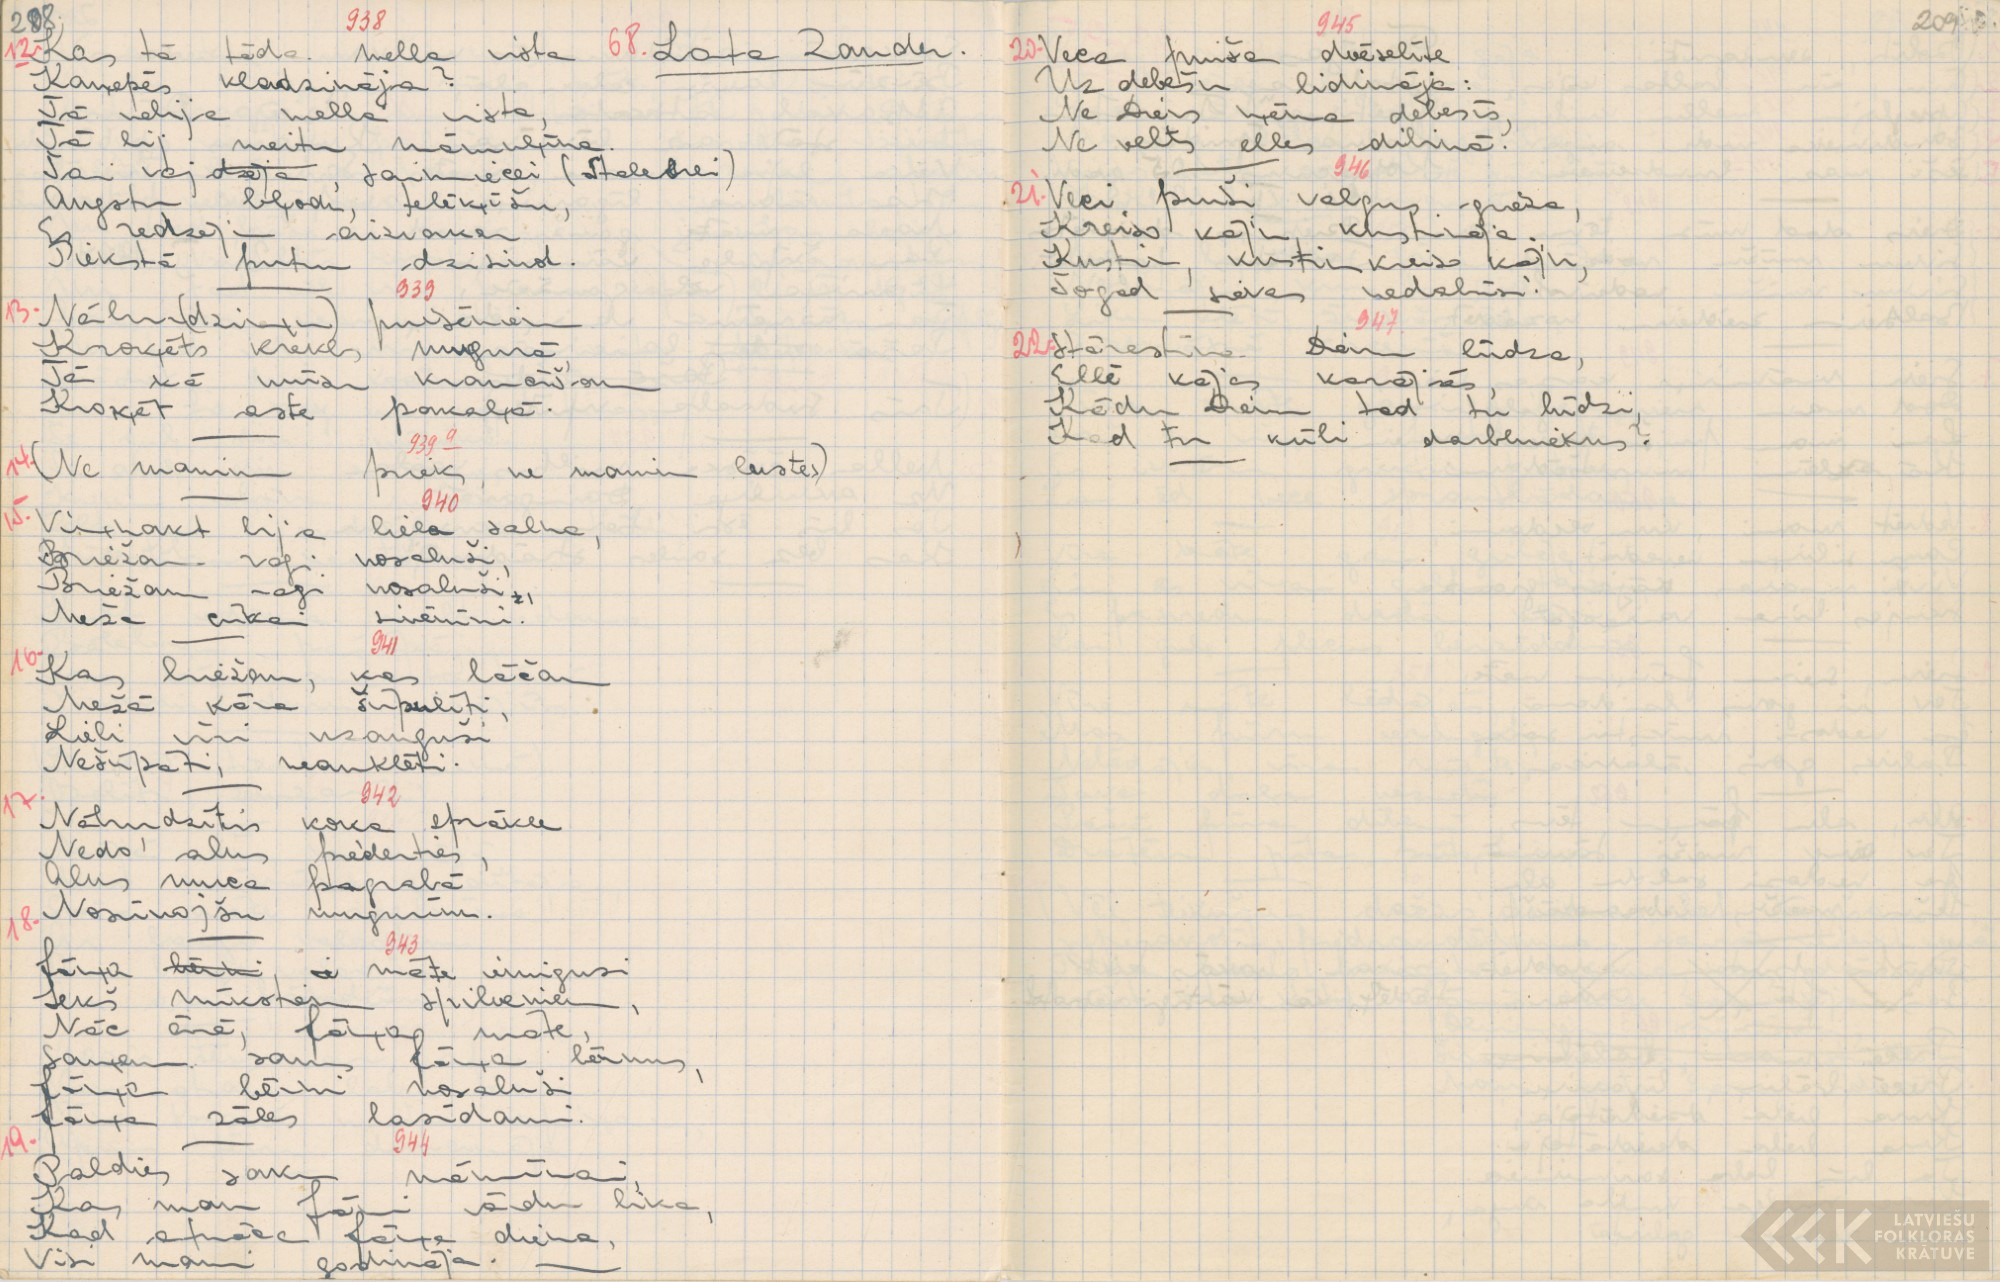 208.
938
12. Kas tā tāda mella vista 68. Lata Zander.
Kaņepēs kladzināja?
Tā nebija mella vista,
Tā bij meitu māmuļiņa.
Tai vaj , saimiecei
Augstu bļodu, telēķīšu,
Es redzēj' aizvakar
Piekstā putru dzisinot.
939
13. Nāburdziņu puisēniem
Kroķēts krekls mugurā,
Tā kā mūsu krancīšam
Kroķēt aste pakaļā.
939a
14. (Ne manim prieks, ne manim lustes)
940
15. Viņnakt bija liela salna,
Briežam ragi nosaluši,
Briežam ragi nosaluši,
Meža cūkai sivēniņi.
941
16. Kas briežam, kas lāčam
Mežā kāra šūpulīti,
Lieli vīri uzauguši
Nešūpāti, neauklēti.
942
17. Nāburdzītis koka sprākle
Nedo' alus piedertiēs,
Alus muca pagrabā
Nosūnojšu muguriņu.
943
18. Jāņa bērni, māte iemigusi
Iekš mīkstajiem spilveniem,
Nāc ārā, Jāņa māte,
Saņem savus Jāņa bērnus,
Jāņa bērni nosaluši
Jāņa zāles lasīdami.
944
19. Paldies saku māmiņai,
Kas man Jāni vārdu lika,
Kad atnāca Jāņa diena,
Visi mani godināja.
945
209.
20. Veca puiša dvēselīte
Uz debesu lidināja:
Ne Dievs ņēma debesīs,
Ne velts elles dibinā.
946
21. Veci puiši valgus grieza,
Kreiso kāju kustināja.
Kustin, kustin kreiso kāju,
Šogad sievas nedabūsi.
947.
22. Stārastiņa Dievu lūdza,
Ellē kājas karājās,
Kādu Dievu tad tu lūdzi,
Kad tu kūli darbiniekus?
LATVIEŠU
FOLKLORAS
KRĀTUVE